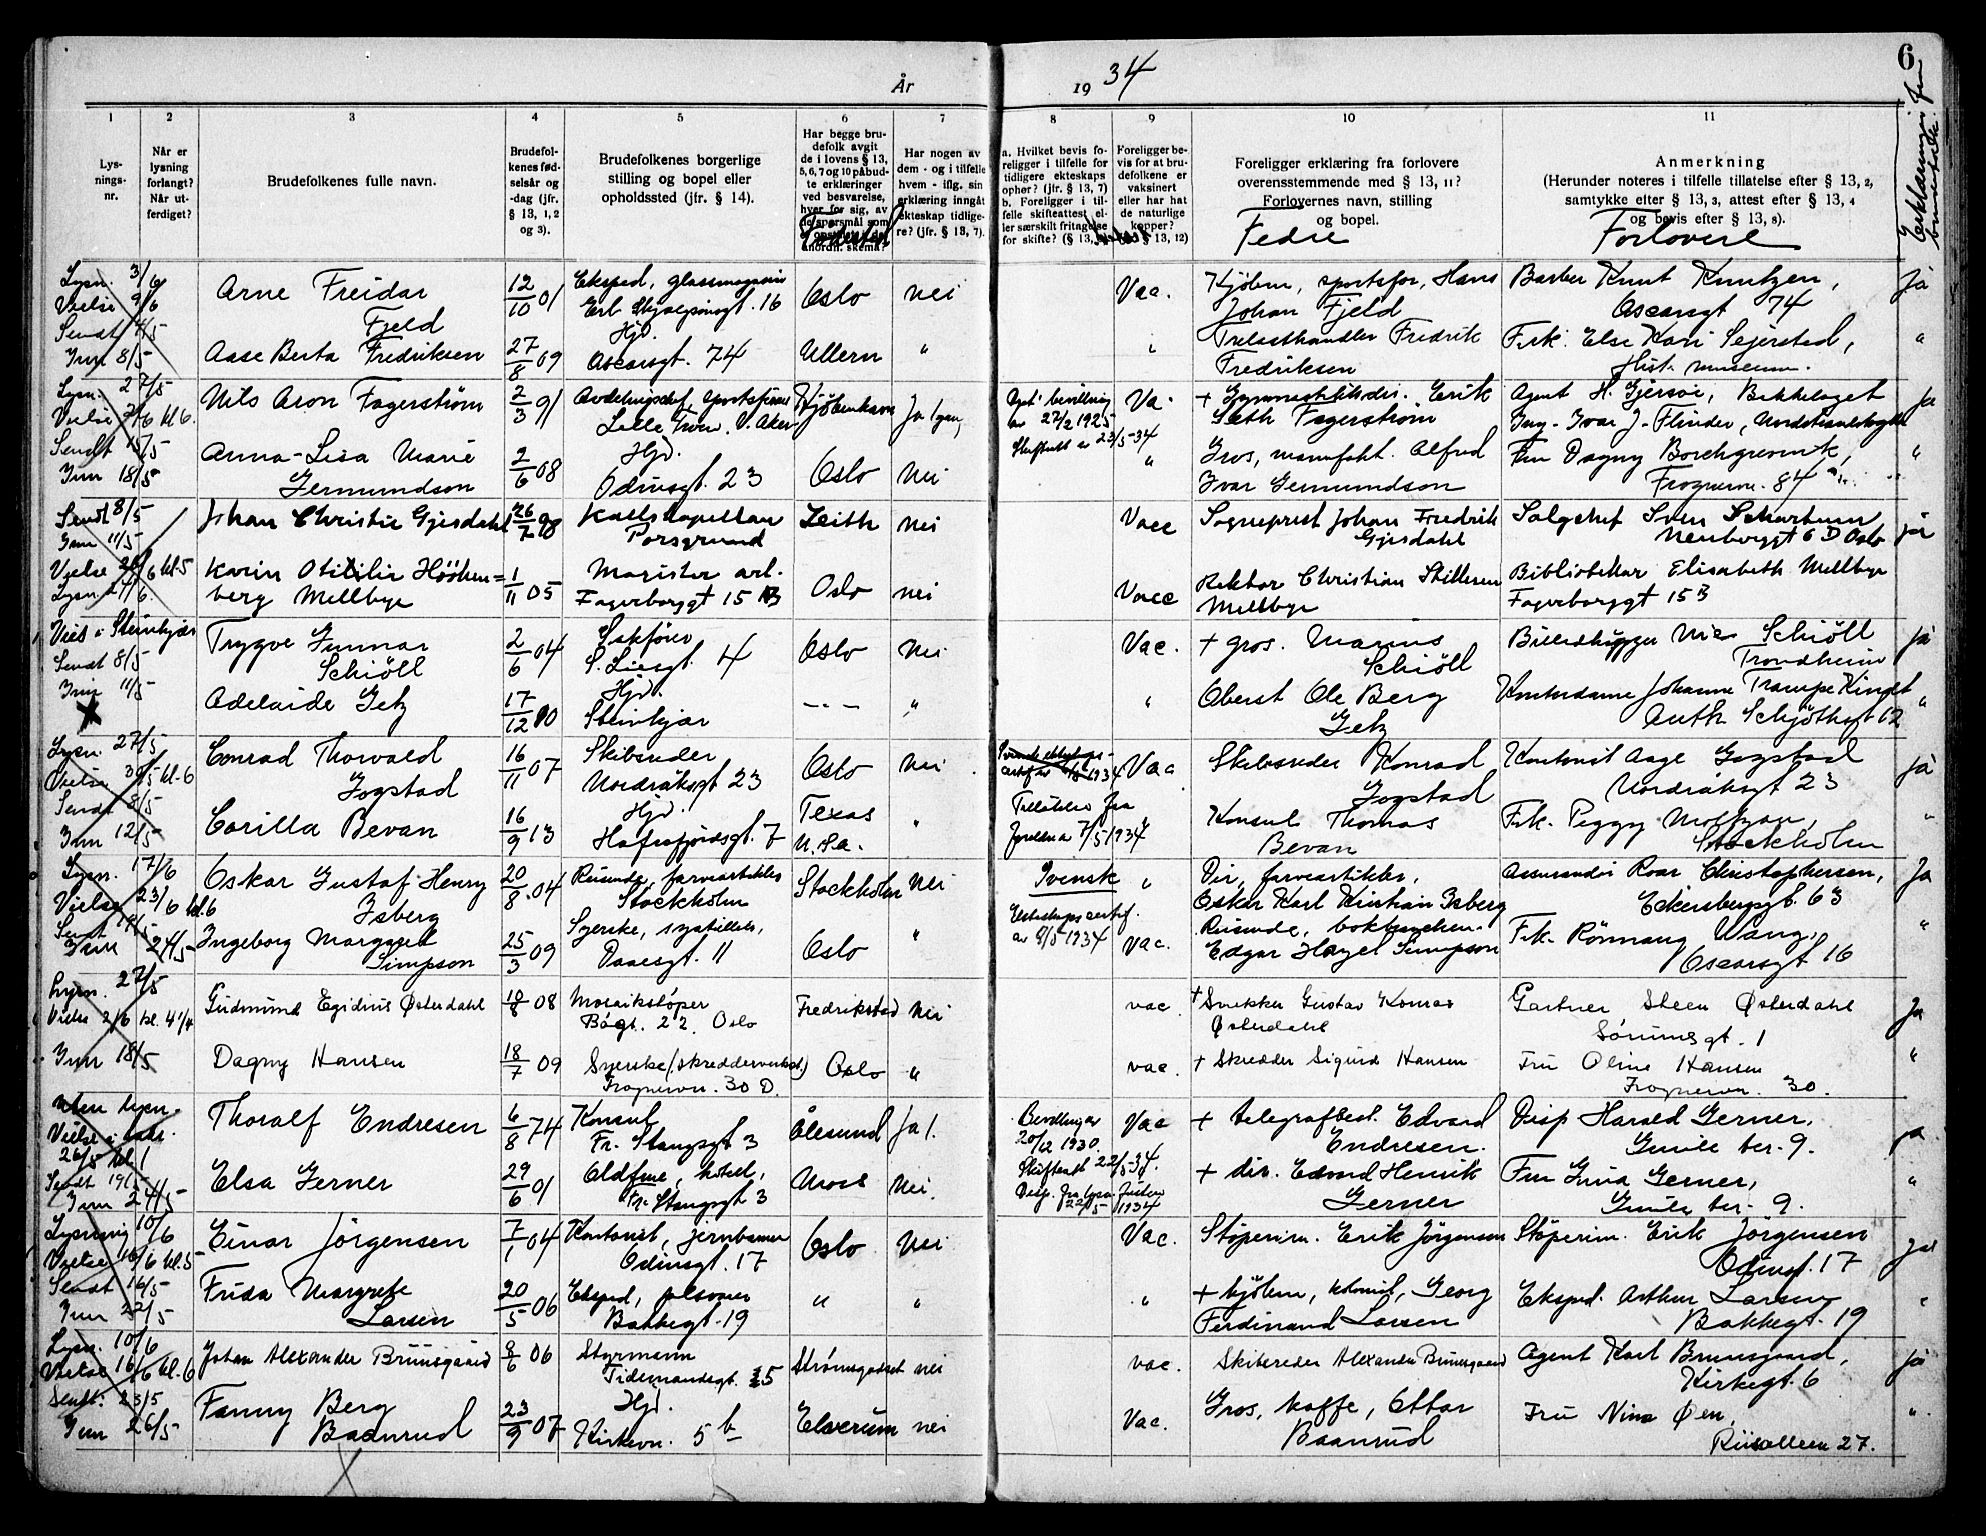 År
19 34
6
Erklæringer fra
brudefolk
1
2
3
4
5
6
7
8
9
10
11
Lys-
nings-
nr.
Når er
lysning
forlangt?
Når ut-
ferdiget?
Brudefolkenes fulle navn.
Brudefol-
kenes fød-
selsår og
-dag (jfr.
§ 13, 1, 2
og 3).
Brudefolkenes borgerlige
stilling og bopel eller
opholdssted (jfr. § 14).
Har begge bru-
defolk avgit
de i lovens § 13,
5, 6, 7 og 10 påbud-
te erklæringer
ved besvarelse,
hver for sig, av
de spørsmål som
Fødested
Har nogen av
dem - og i tilfelle
hvem - iflg. sin
erklæring inngått
ekteskap tidlige-
re? (jfr. § 13, 7).
a. Hvilket bevis fo-
religger i tilfelle for
tidligere ekteskaps
ophør? (jfr. § 13, 7)
b. Foreligger i til-
felle skifteattest, el-
ler særskilt fritagelse
for skifte? (§ 13,
Foreligger be-
vis for at bru-
defolkene er
vaksinert
eller har hat
de naturlige
kopper?
§ 13, 12)
Foreligger erklæring fra forlovere
overensstemmende med § 13, 11?
Forlovernes navn, stilling
og bopel.
Fedre
Anmerkning
(Herunder noteres i tilfelle tillatelse efter § 13, 2,
samtykke efter § 13, 3, attest efter § 13, 4
og bevis efter § 13, 8).
Forlovere
Lysn. 3/6
Vielse 9/6
Sendt 4/5
Inn 8/5
Arne Freidar
Fjeld
12/10 01
Eksped, glassmagasin
Erl. Skjalgssønsgt. 16
Oslo
nei
Vac.
Kjøbm, sportsfor, Hans
Johan Fjeld
Barber Knut Knutzen,
Oscarsgt 74
Ja
Aase Berta Fredriksen
27/8 09
Hjd.
Oscarsgt. 74
Ullern
"
"
Trelasthandler Fredrik
Fredriksen
Frk. Else Kari Sejersted,
Hist. museum.
"
Lysn. 27/5
Vielse 2/6 kl 6.
Sendt 15/5
Inn 18/5
Nils Aron Fagerström
2/3 91
Avdelingschef, sportsfirma
Lille Frøen, V. Aker
Kjöbenhavn
Ja 1 gang
bevilling
av 27/2 1925
23/5-34
Va.
+ Gymnastikdir. Erik
Seth Fagerström
Agent H. Gjersøe, Bekkelaget
Ing. Ivar J. Flinder, Nordstrandshøgda
Ja
Anna-Lisa Marie
Germundson
2/6 08
Hjd.
Odinsgt. 23
Oslo
Nei
"
Gros, manufakt. Alfred
Ivar Germundson
Fru Dagny Borchgrevink,
Frognerv. 84
"
Sendt 8/5
Inn 11/5
Vielse 26/6 kl. 5
Lysn. 24/6.
Johan Christie Gjesdahl
26/7 98
Kallskapellan
Porsgrund
Leith
nei
Vacc
Sogneprest Johan Fredrik
Gjesdahl
Salgchef Sven Schartum
Neubergsgt 6 D Oslo
ja
Karin Otitilie Hööhen=
berg Mellbye
1/11 05
Magister art.
Fagerborggt 15 B
Oslo
nei
Vacc
Rektor Christian Stillesen
Mellbye
Bibliotekar Elisabeth Mellbye
Fagerborggt 15 B
Viet i Steinkjær
Sendt 8/5
Inn 11/5
Trygve Gunnar
Schiöll
2/6 04
Sakfører
S. Liesgt. 4
Oslo
Nei
Vac.
+ gros. Marius
Schiöll
Billedhugger Nic Schiöll
Trondheim
ja
Adelaide Getz
17/12 10
Hjd.
Steinkjær
- - -
"
"
Oberst Ole Berg
Getz
Kontordame Johanne Trampe Kindt
Auth Schjöthsgt 12
"
Lysn. 27/5
Vielse 30/5 kl. 6
Sendt 8/5
Inn 12/5
Conrad Thorvald
Gogstad
16/11 07
Skibsreder
Nordråksgt 23
Oslo
Nei
Vac
Skibsreder Konrad
Gogstad
Kontorist Aage Gogstad
Nordråksgt 23
ja
Corilla Bevan
16/9 13
Hjd.
Hafrsfjordsgt. 7
Texas
U.S.a.
"
Tillatelse fra
foreldrene 7/5 1934
"
Konsul Thomas
Bevan
Frk. Peggy Moltzau,
Stockholm
"
Lysn. 17/6
Vielse 23/6 kl. 6
Sendt 19/5
Inn 24/5
Oskar Gustaf Henry
Isberg
20/8 04
Reisende, farveartikler
Stockholm
Stockholm
Nei
Svensk
Ekteskapscertif.
av 9/5 1934
"
Dir, farveartikler,
Oskar Karl Kristian Isberg
Assurandør Roar Christophersen,
Eckersbergsgt. 63
Ja
Ingeborg Margaret
Simpson
25/3 09
Syerske, systilles,
Daaesgt. 11
Oslo
"
Vac.
Reisende, boktrykken.
Edgar Hazel Simpson
Frk. Rönnaug Wang,
Oscarsgt 16
"
Lysn. 27/5
Vielse 2/6 kl. 4 1/4
Inn 18/5
Gudmund Egidius Østerdahl
18/8 08
Mosaikstøper
Bögt. 22. Oslo
Fredrikstad
Nei
vac.
+ Snekker Gustav Konrad
Østerdahl
Gartner Steen Østerdahl
Sörumsgt. 1
Ja
Dagny Hansen
18/7 09
Syerske (skredderverkst.)
Frognervn. 30 D.
Oslo
"
vac.
+ Skredder Sigurd Hansen
Fru Oline Hansen
Frognervn. 30.
"
Uten lysn.
Vielse i
26/5 kl 1
Sendt 19/5
Inn 24/5
Thoralf Endresen
6/8 74
Konsul
Fr. Stangsgt 3
Ålesund
Ja 1.
Bevilling av
20/12 1930.
Skifteatt 22/5-34.
Vac
+ telegrafbest. Edvard
Endresen.
Disp Harald Gerner,
Gimle ter. 9.
ja
Elsa Gerner
29/6 01
Oldfrue, hotel,
Fr. Stangsgt 3
Moss
Nei.
Disp. fra lysn. Justisdep.
22/5 1934
+ dir. Edvard Henrik
Gerner
Fru Gina Gerner,
Gimle ter. 9.
"
Lysning 10/6
Vielse 16/6 kl. 5
Sendt 16/5
Inn 22/5
Einar Jörgensen
7/1 04
Kontorist, jernbanen
Odinsgt. 17
Oslo
Nei
Vac.
Støperim. Erik Jörgensen
Støperim. Erik Jörgensen
Odinsgt. 17
Ja
Frida Margrete
Larsen
20/5 06
Eksped, pelsvarer
Bakkegt. 19
"
"
"
+ kjøbm, kolonial, Georg
Ferdinand Larsen
Eksped. Arthur Larsen
Bakkegt. 19
"
Lysn. 10/6
Vielse 16/6 kl. 6
Sendt. 23/5
Inn 26/5
Johan Alexander Bruusgaard
9/6 06
Styrmann
Tidemandsgt. 25
Strømsgodset
nei
vac.
Skibsreder Alexander Bruusgaard
Agent Karl Bruusgaard,
Kirkegt. 6
ja
Fanny Berg
Baanrud
23/9 07
Hjd.
Kirkevn. 5 b
Elverum
nei
Vac.
Gros, kaffe, Ottar
Baanrud
Fru Nina Øen,
Riisalleen 27.
"